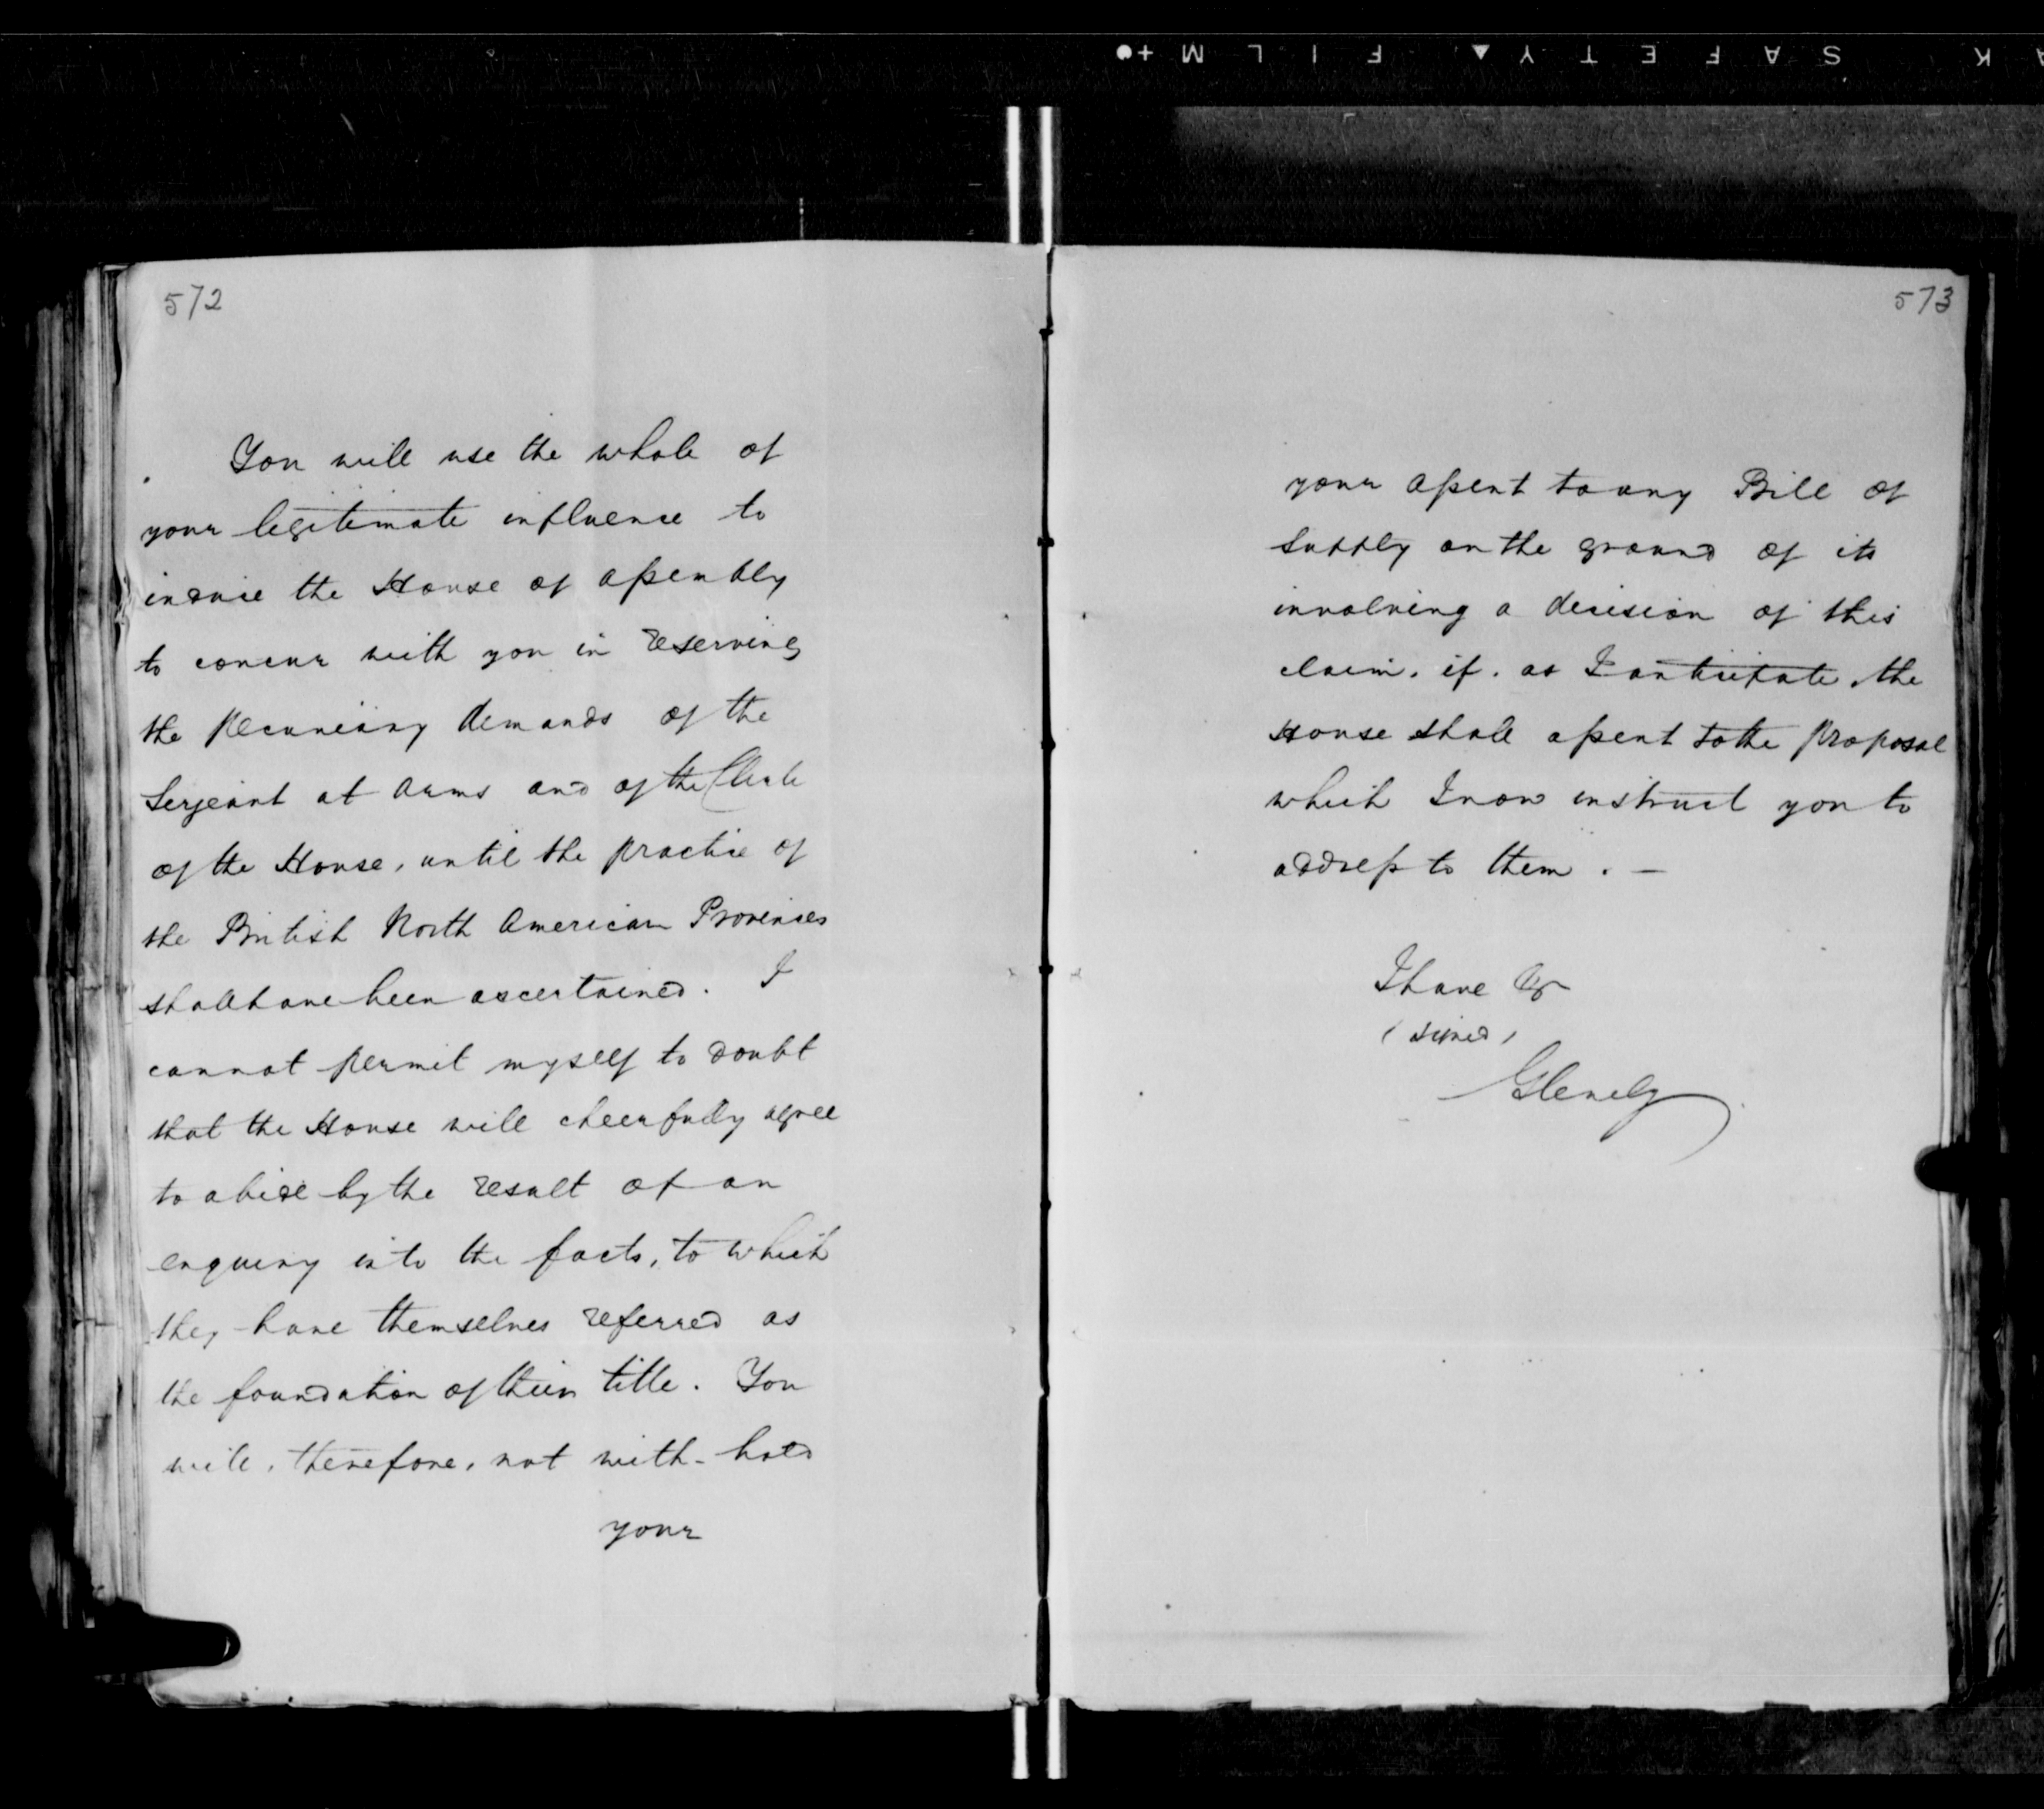 SAFETY FILM
572
You will use the whole of
your legitimate influence to
induce the House of Assembly
to concur with you in reserving
the pecuniary demands of the
Serjeant at Arms and of the Clerk
of the House, until the practice of
the British North American Provinces
shall have been ascertained. I
cannot permit myself to doubt
that the House will cheerfully agree
to abide by the result of an
enquiry into the facts, to which
they have themselves referred as
the foundation of their title. You
will, therefore, not with-hold
your
573
your assent to any Bill of
Supply on the ground of its
involving a decision of this
claim, if, as I anticipate, the
House shall assent to the proposal
which I now instruct you to
address to them. —
I have &c
(signed)
Glenelg